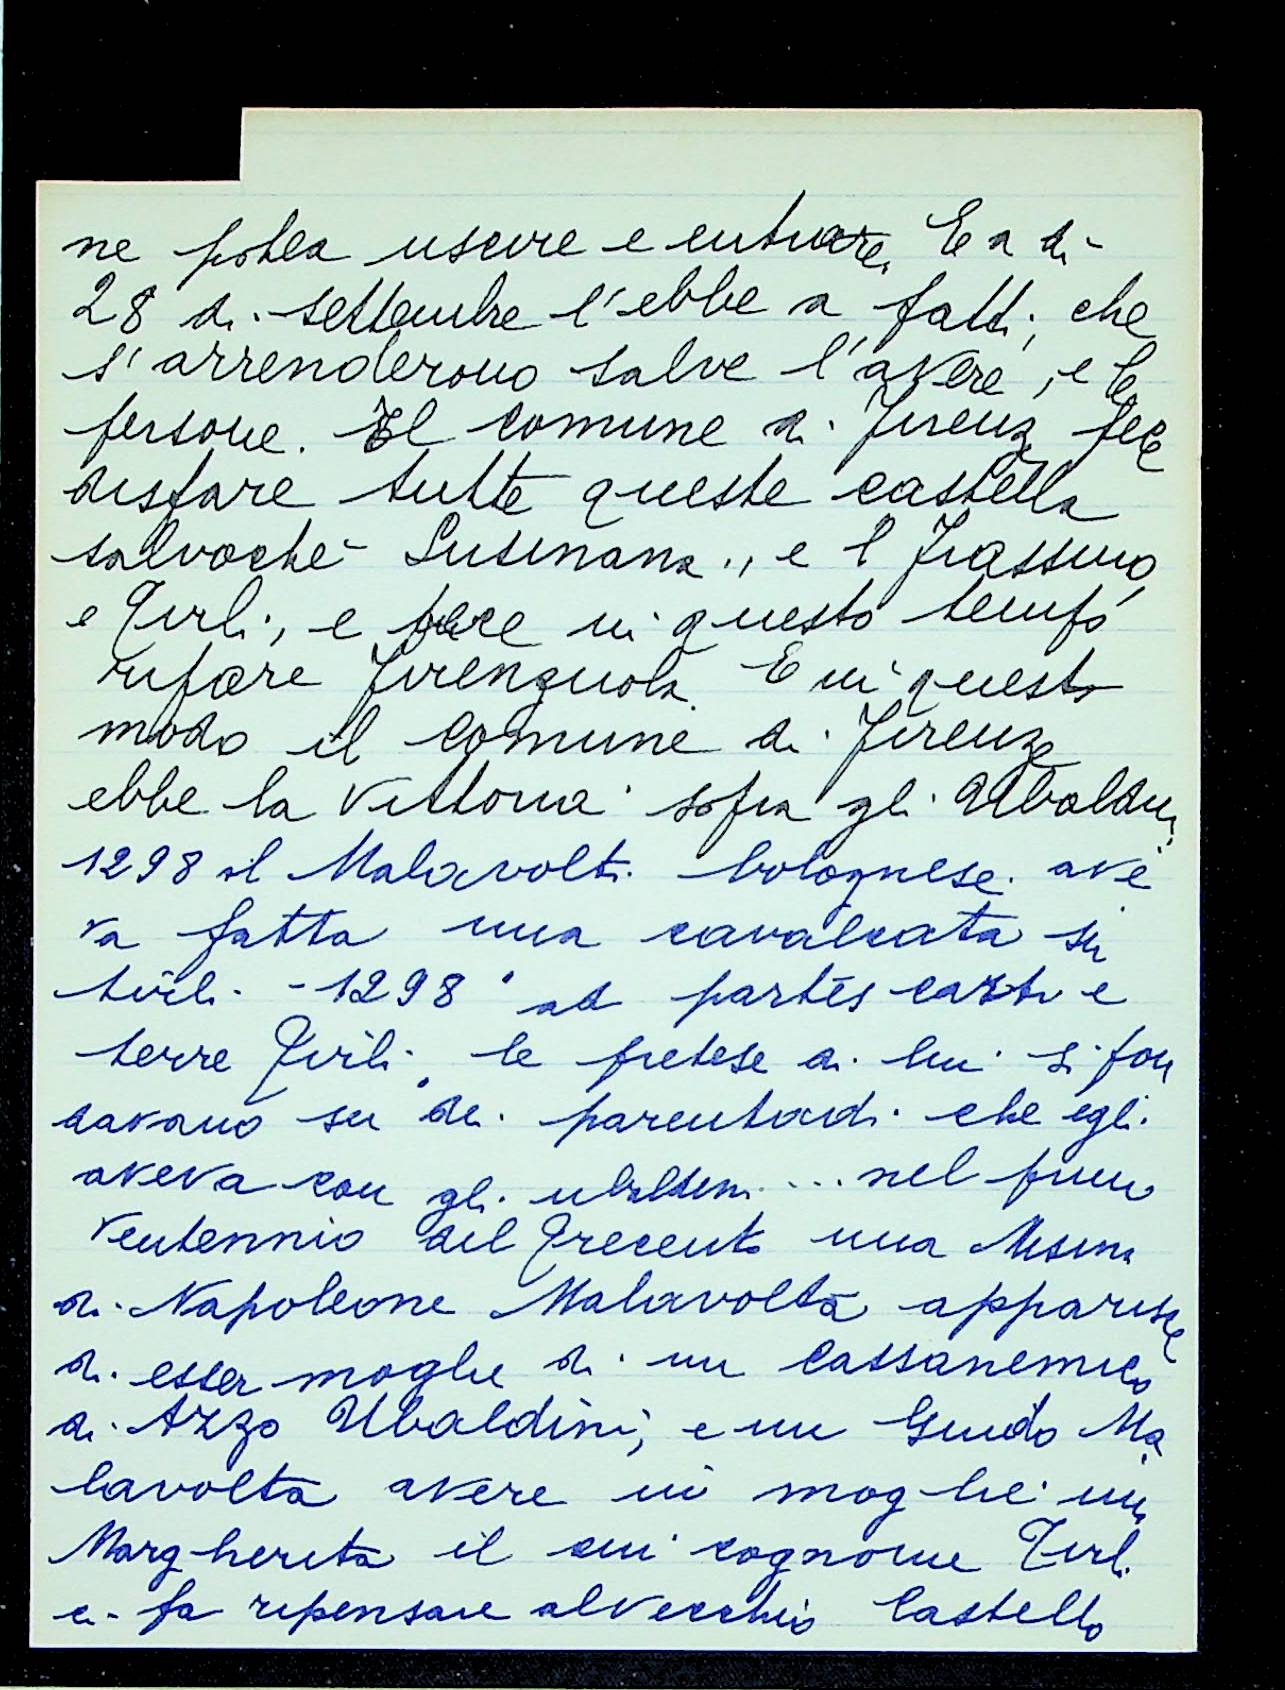 ne potea uscire e entrare. E a dì
28 di settembre l'ebbe a patti, che
s'arrenderono salve l'avere, e le
persone. El comune di Firenze fece
disfare tutte queste castella
salvochè Susinana, e 'l Frassino,
e Tirli, e fece in questo tempo
rifare Firenzuola. E in questo
modo il comune di Firenze
ebbe la vittoria sopra gli Ubaldini,
1298 il Malavolti bolognese ave
va fatta una cavalcata su
tirli - 1298 "ad partes castri e
terre Tirli" le pretese di lui si fon
davano su dei parentadi che egli
aveva con gli ubaldini ... nel primo
ventennio del Trecento una
di Napoleone Malavolta apparisce
di esser moglie di un Cassanemico
di Azzo Ubaldini, e un Guido Ma
lavolta avere in moglie una
Margherita il cui cognome Tirli
ci fa ripensare al vecchio Castello